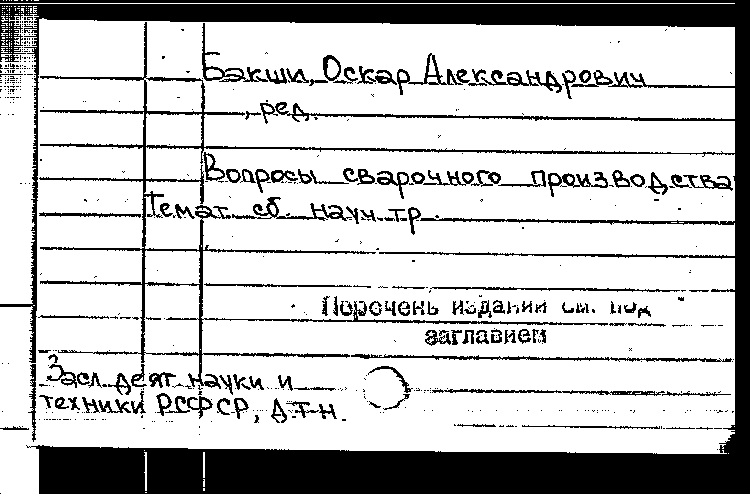 Бакши, Оскар Александрович
, ред.
Вопросы сварочного производства
Темат. сб. науч. тр.
Перечень изданий см. под
заглавием
Засл. деят. науки и
техники РСФСР, д.т.н.